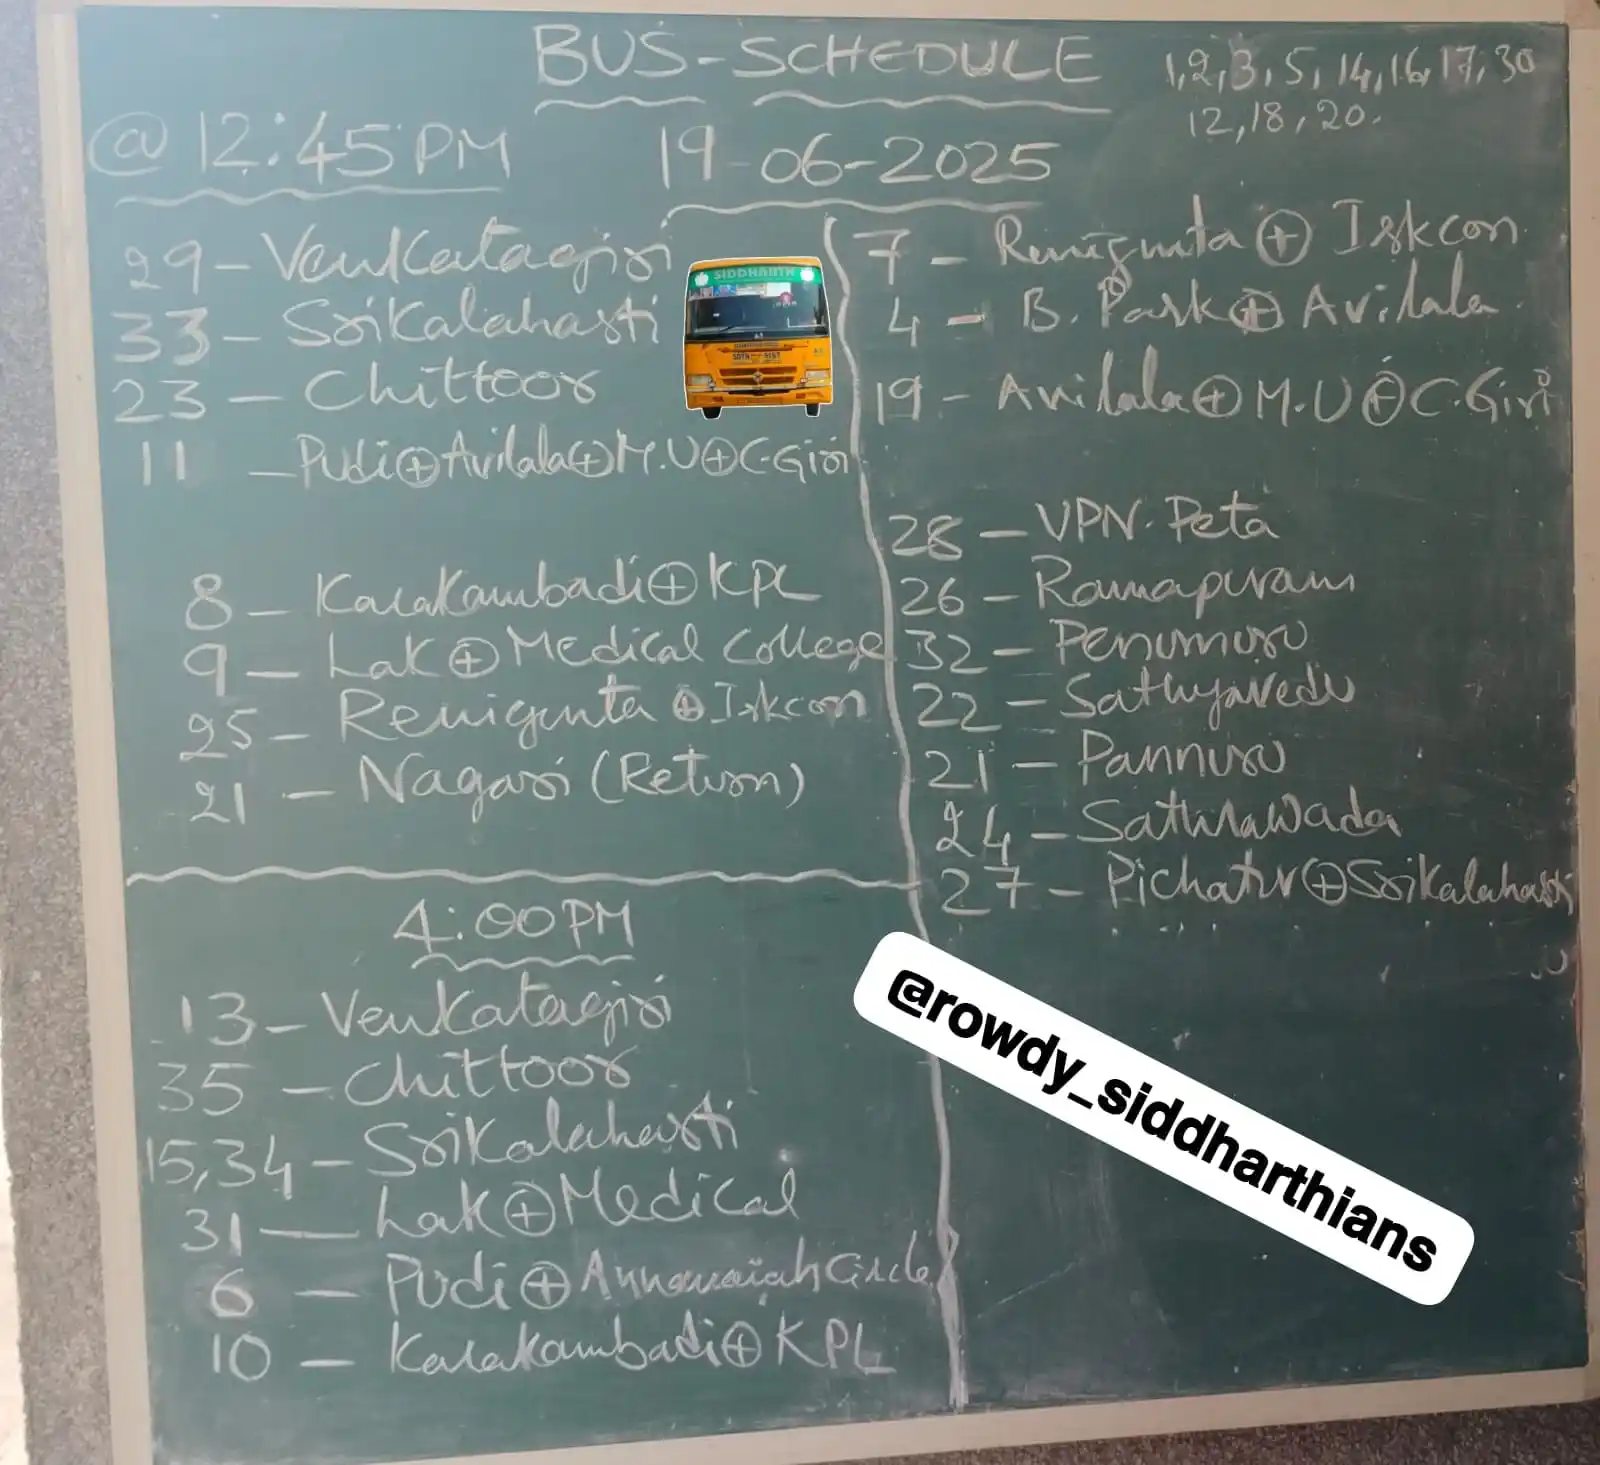 BUS-SCHEDULE
1,2,3,5,14,16,17,30
12,18,20.
@ 12:45 PM
19-06-2025
29 - Venkatagiri
33 - Srikalahasti
23 - Chittoor
11 - Pudi ⊕ Avilala ⊕ M.U ⊕ C.Giri
8 - Karakambadi ⊕ KPL
9 - Lak ⊕ Medical College
25 - Renigunta ⊕ Iskcon
21 - Nagari (Return)
4:00 PM
13 - Venkatagiri
35 - Chittoor
15,34 - Srikalahasti
31 - Lak ⊕ Medical
6 - Pudi ⊕ Annamaiah Circle
10 - Karakambadi ⊕ KPL
SIDDHARTH
7 - Renigunta ⊕ Iskcon
4 - B. Park ⊕ Avilala
19 - Avilala ⊕ M.U ⊕ C.Giri
28 - VPN. Peta
26 - Ramapuram
32 - Penumuru
22 - Sathyavedu
21 - Pannuru
24 - Sathrawada
27 - Pichatur ⊕ Srikalahasti
@rowdy_siddharthians